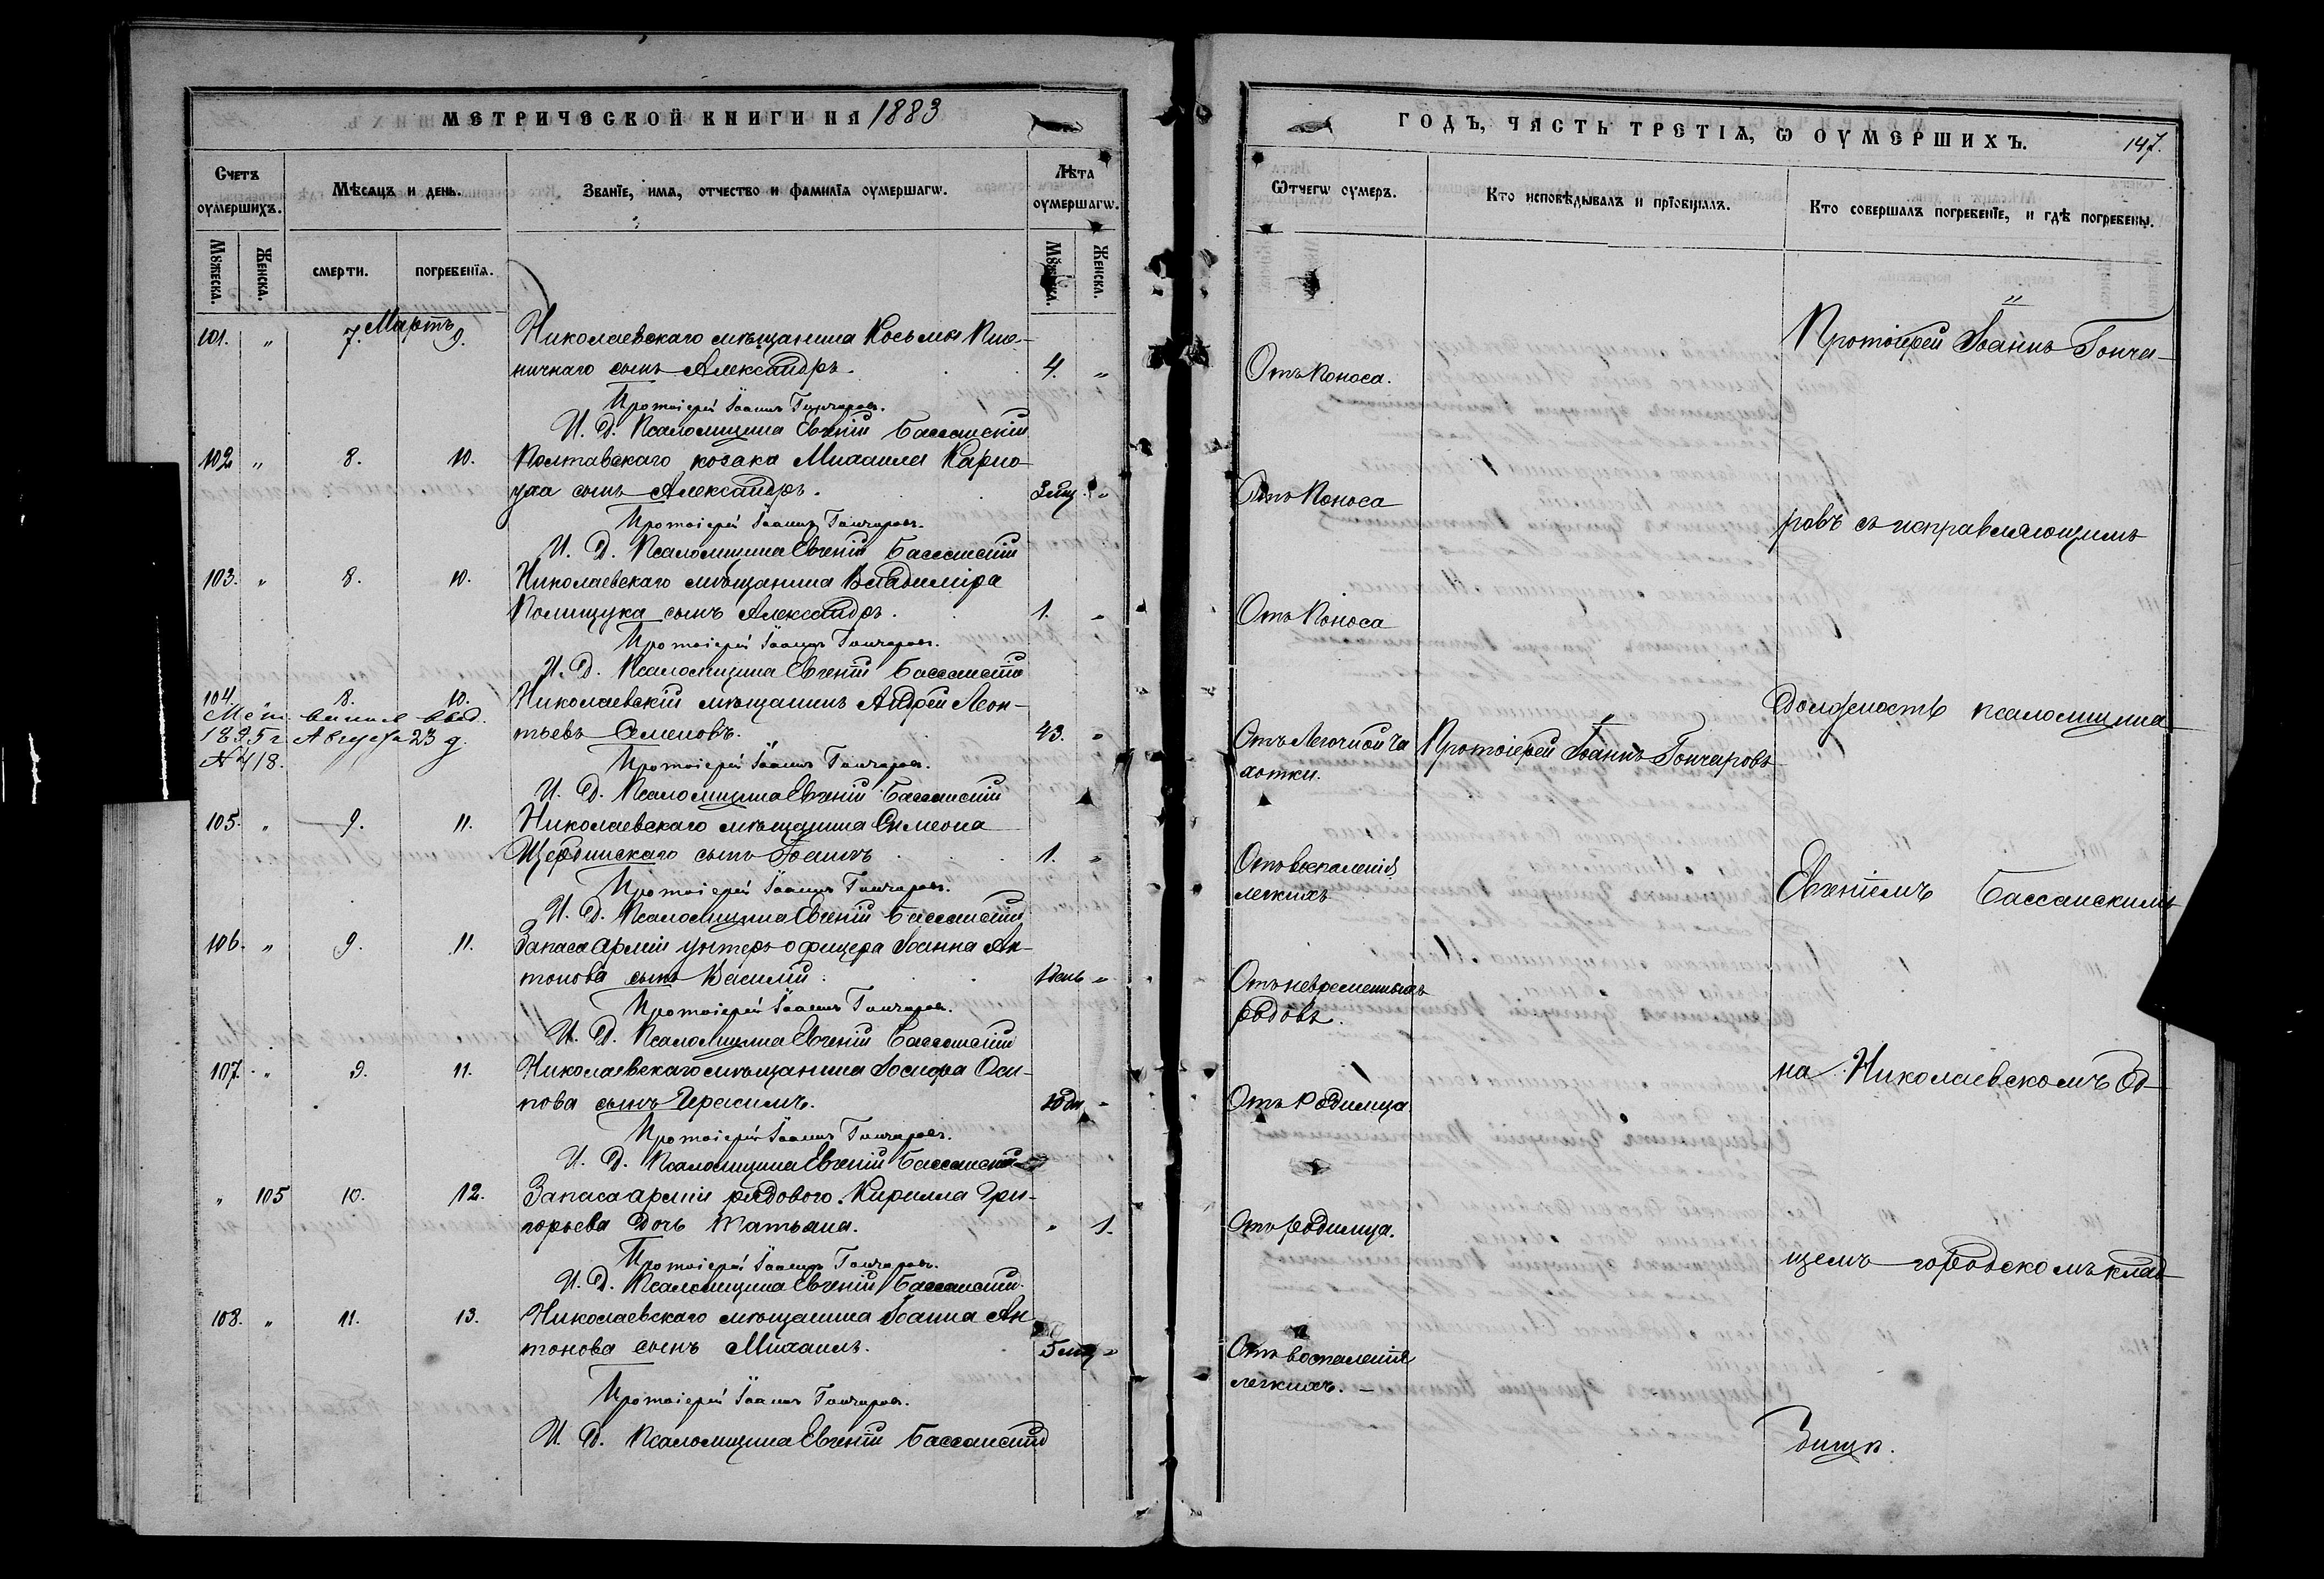 МЕТРИЧЕСКОЙ КНИГИ НА 1883
Счетъ оумершихъ.
Мѣсяцъ и день.
Званїе, имя, отчество и фамилїя оумершагѡ.
Лѣта оумершагѡ.
Мꙋжеска.
Женска.
смерти.
погребенїя.
Мꙋжеска.
Женска.
Мартъ
101. " 7. 9. Николаевскаго мѣщанина Косьмы Пше-
ничнаго сынъ Александръ. 4. "
Протоіерей Іоаннъ Гончаровъ.
И. Д. Псаломщика Евгеній Бассанскій
102 " 8. 10. Полтавскаго козака Михаила Карно-
уха сынъ Александръ. 3 мц. "
Протоіерей Іоаннъ Гончаровъ.
И. Д. Псаломщика Евгеній Бассанскій
103. " 8. 10. Николаевскаго мѣщанина Владиміра
Полищука сынъ Александръ. 1. "
Протоіерей Іоаннъ Гончаровъ.
И. Д. Псаломщика Евгеній Бассанскій
104. " 8. 10. Николаевскій мѣщанинъ Андрей Леон-
Мет. выпись выд.
тьевъ Семеновъ. 43. "
1895 г. Августа 23 д.
№ 418.
Протоіерей Іоаннъ Гончаровъ.
И. Д. Псаломщика Евгеній Бассанскій
105. " 9. 11. Николаевскаго мѣщанина Симеона
Щербинскаго сынъ Іоаннъ 1. "
Протоіерей Іоаннъ Гончаровъ.
И. Д. Псаломщика Евгеній Бассанскій
106. " 9. 11. Запаса арміи унтеръ-офицера Іоанна Ан-
тонова сынъ Василій. 1 день "
Протоіерей Іоаннъ Гончаровъ.
И. Д. Псаломщика Евгеній Бассанскій
107. " 9. 11. Николаевскаго мѣщанина Оси-
пова сынъ Герасимъ. 10 дн "
Протоіерей Іоаннъ Гончаровъ.
И. Д. Псаломщика Евгеній Бассанскій
" 105 10. 12. Запаса арміи рядового Кирилла Гри-
горьева дочь Татьяна. " 1.
Протоіерей Іоаннъ Гончаровъ.
И. Д. Псаломщика Евгеній Бассанскій
108. " 11. 13. Николаевскаго мѣщанина Іоанна Ан-
тонова сынъ Михаилъ. 5 мц "
Протоіерей Іоаннъ Гончаровъ.
И. Д. Псаломщика Евгеній Бассанскій
ГОДЪ, ЧАСТЬ ТРЕТІѦ, Ѡ ОУМЕРШИХЪ.
147.
Ѿчегѡ оумеръ.
Кто исповѣдывалъ и прїобщалъ.
Кто совершалъ погребенїе, и гдѣ погребены.
Протоіерей Іоаннъ Гонча-
Отъ поноса.
Отъ поноса
ровъ съ исправляющимъ
Отъ поноса
должность псаломщика
Отъ легочной ча
хотки.
Протоіерей Іоаннъ Гончаровъ
Отъ воспаленія
легкихъ
Евгеніемъ Бассанскимъ
Отъ невременныхъ
родовъ.
на Николаевскомъ об-
Отъ родимца
Отъ родимца.
щемъ городскомъ клад-
Отъ воспаленія
легкихъ. –
бищѣ.